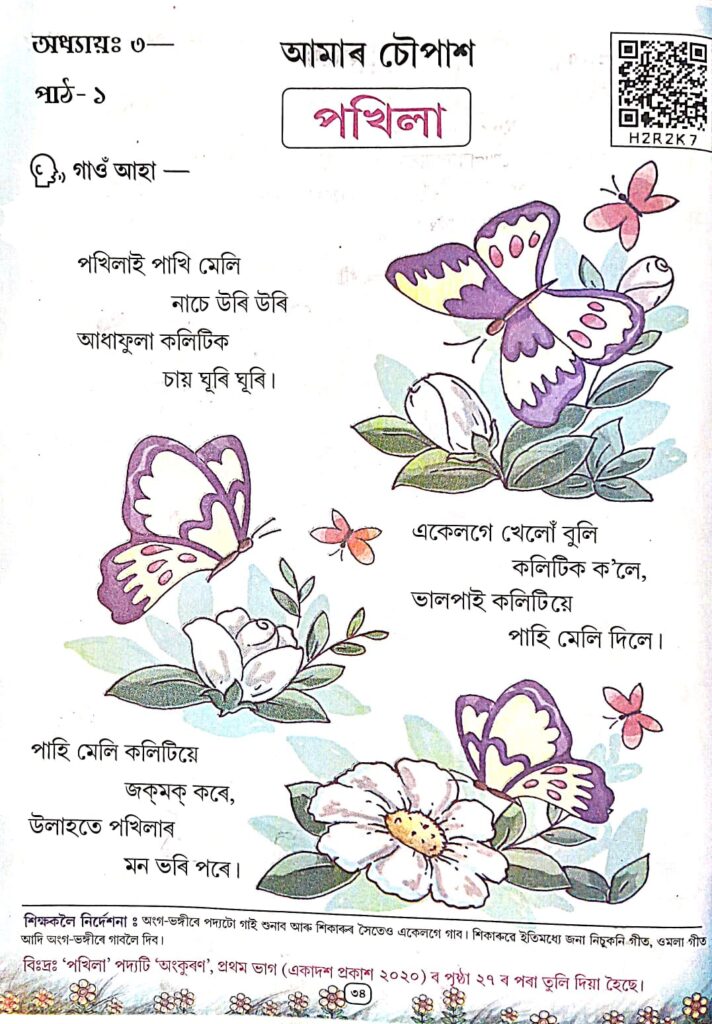 অধ্যায়ঃ ৩—
আমাৰ চৌপাশ
পাঠ- ১
পখিলা
H2R2K7
গাওঁ আহা —
পখিলাই পাখি মেলি
নাচে উৰি উৰি
আধাফুলা কলিটিক
চায় ঘূৰি ঘূৰি।
একেলগে খেলোঁ বুলি
কলিটিক ক'লে,
ভালপাই কলিটিয়ে
পাহি মেলি দিলে।
পাহি মেলি কলিটিয়ে
জক্‌মক্‌ কৰে,
উলাহতে পখিলাৰ
মন ভৰি পৰে।
শিক্ষকলৈ নিৰ্দেশনা : অংগ-ভঙ্গীৰে পদ্যটো গাই শুনাব আৰু শিকাৰুৰ সৈতেও একেলগে গাব। শিকাৰুৱে ইতিমধ্যে জনা নিচুকনি গীত, ওমলা গীত
আদি অংগ-ভঙ্গীৰে গাবলৈ দিব।
বিঃদ্ৰঃ 'পখিলা' পদ্যটি 'অংকুৰণ', প্ৰথম ভাগ (একাদশ প্ৰকাশ ২০২০) ৰ পৃষ্ঠা ২৭ ৰ পৰা তুলি দিয়া হৈছে।
৩৪